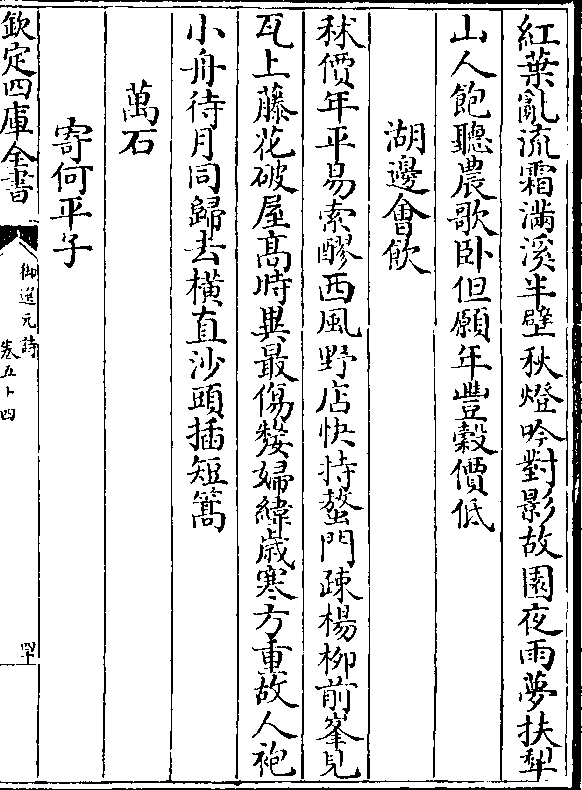 紅葉亂流霜滿溪半壁秋燈吟對影故園夜雨夢扶犁
山人飽聽農歌臥但願年豐穀價低
湖邊會飲
秫價年平易索醪西風野店快持螯門疎楊柳前峯見
瓦上藤花破屋髙時異最傷嫠婦緯歳寒方重故人袍
小舟待月同歸去橫直沙頭插短篙
萬石
寄何平子
欽定四庫全書
御選元詩
卷五十四